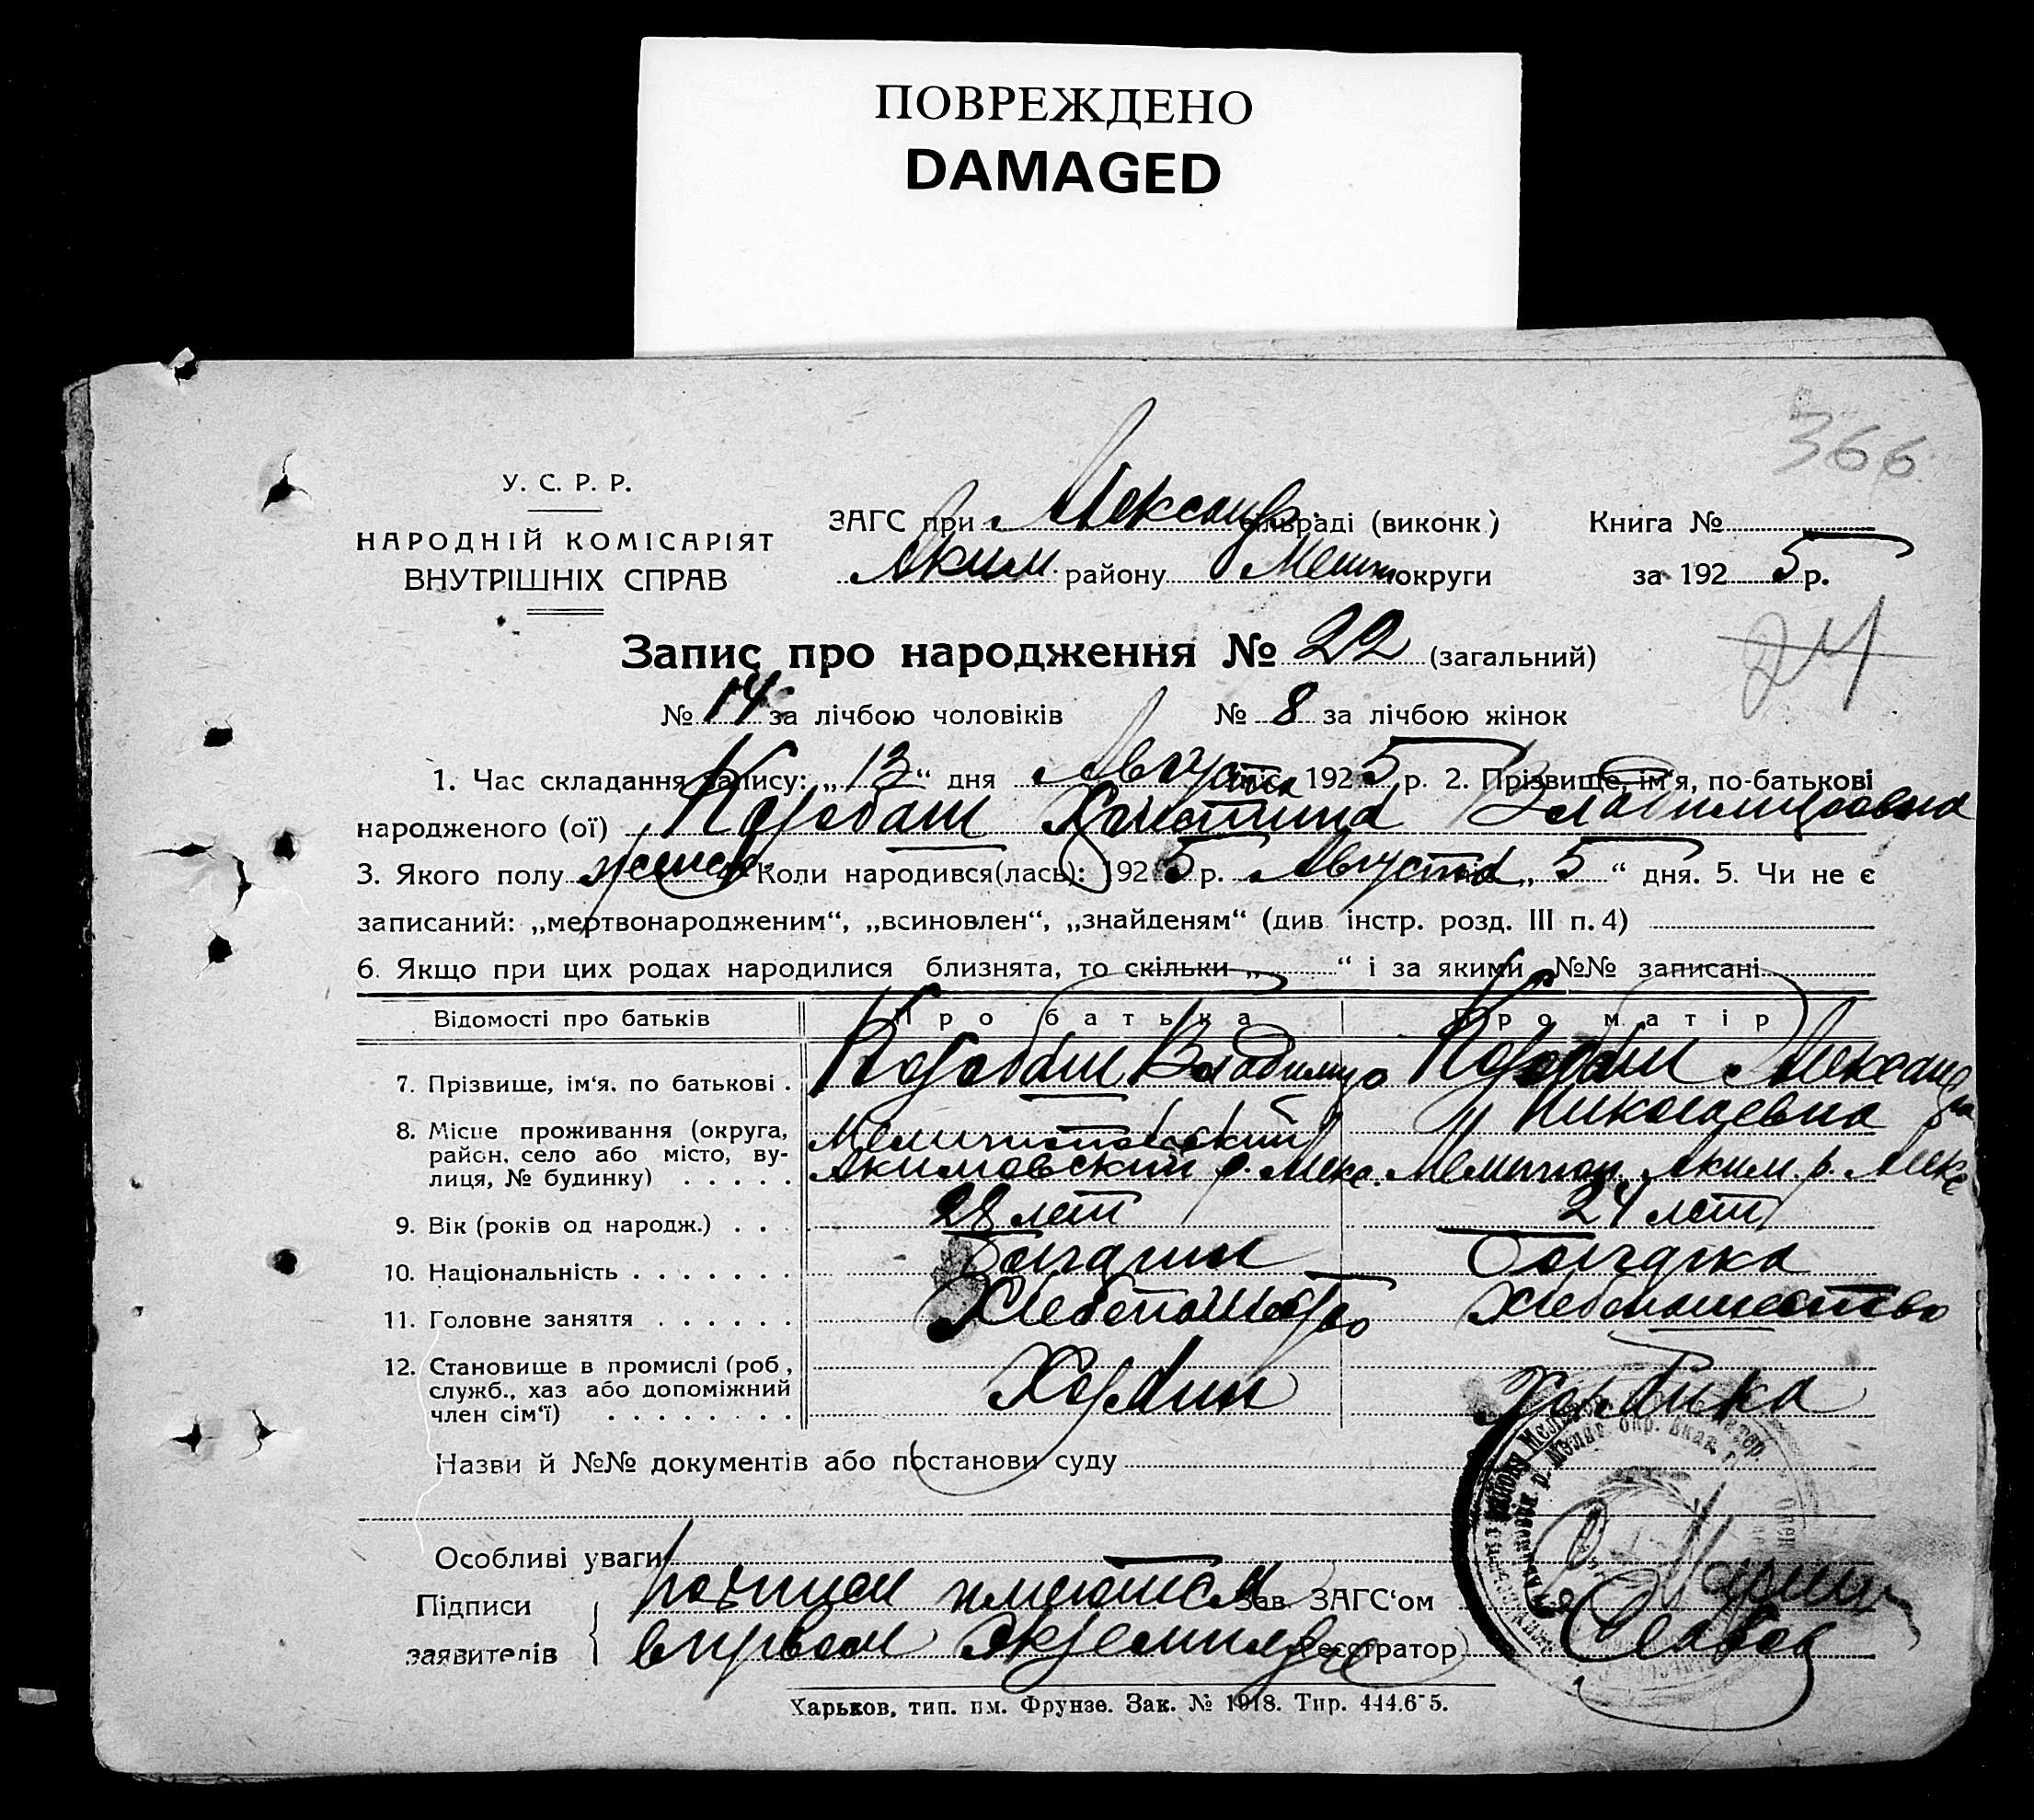 ПОВРЕЖДЕНО
DAMAGED
366
У. С. Р. Р.
НАРОДНІЙ КОМІСАРІЯТ
ВНУТРІШНІХ СПРАВ
ЗАГС при Александр. сільраді (виконк.)
Аким. району Мелит округи
Книга №
за 192 5 р.
24
Запис про народження № 22 (загальний)
№ 14 за лічбою чоловіків № 8 за лічбою жінок
1. Час складання запису: „ 13 “ дня Августа міс. 192 5 р. 2. Прізвище, ім'я, по-батькові
народженого (ої) Коробаш Христина Владимировна
3. Якого полу женск. Коли народився(лась): 192 5 р. Августа „ 5 “ дня. 5. Чи не є
записаний: „мертвонародженим“, „всиновлен“, „знайденям“ (див інстр. розд. III п. 4)
6. Якщо при цих родах народилися близнята, то скільки „ “ і за якими №№ записані
Відомості про батьків Про батька Про матір
7. Прізвище, ім'я. по батькові . Коробаш Владимир Коробаш Александра
Николаевна
8. Місце проживання (округа,
район, село або місто, ву-
лиця, № будинку) . . . . .
Мелитопольский
Акимовский р. Алекс. Мелитоп. Аким. р. Алекс
9. Вік (років од народж.) . . . 28 лет 24 лет
10. Національність . . . . . . . Болгарин Болгарка
11. Головне заняття . . . . . . Хлебопашество Хлебопашество
12. Становище в промислі (роб.,
служб., хаз або допоміжний
член сім'ї) . . . . . . . .
Назви й №№ документів або постанови суду
Особливі уваги
Підписи
заявителів
росписи имеются
в первом экземпляре
Зав. ЗАГС'ом
Реєстратор
Харьков, тип. им. Фрунзе. Зак. № 1918. Тир. 444.6-5.